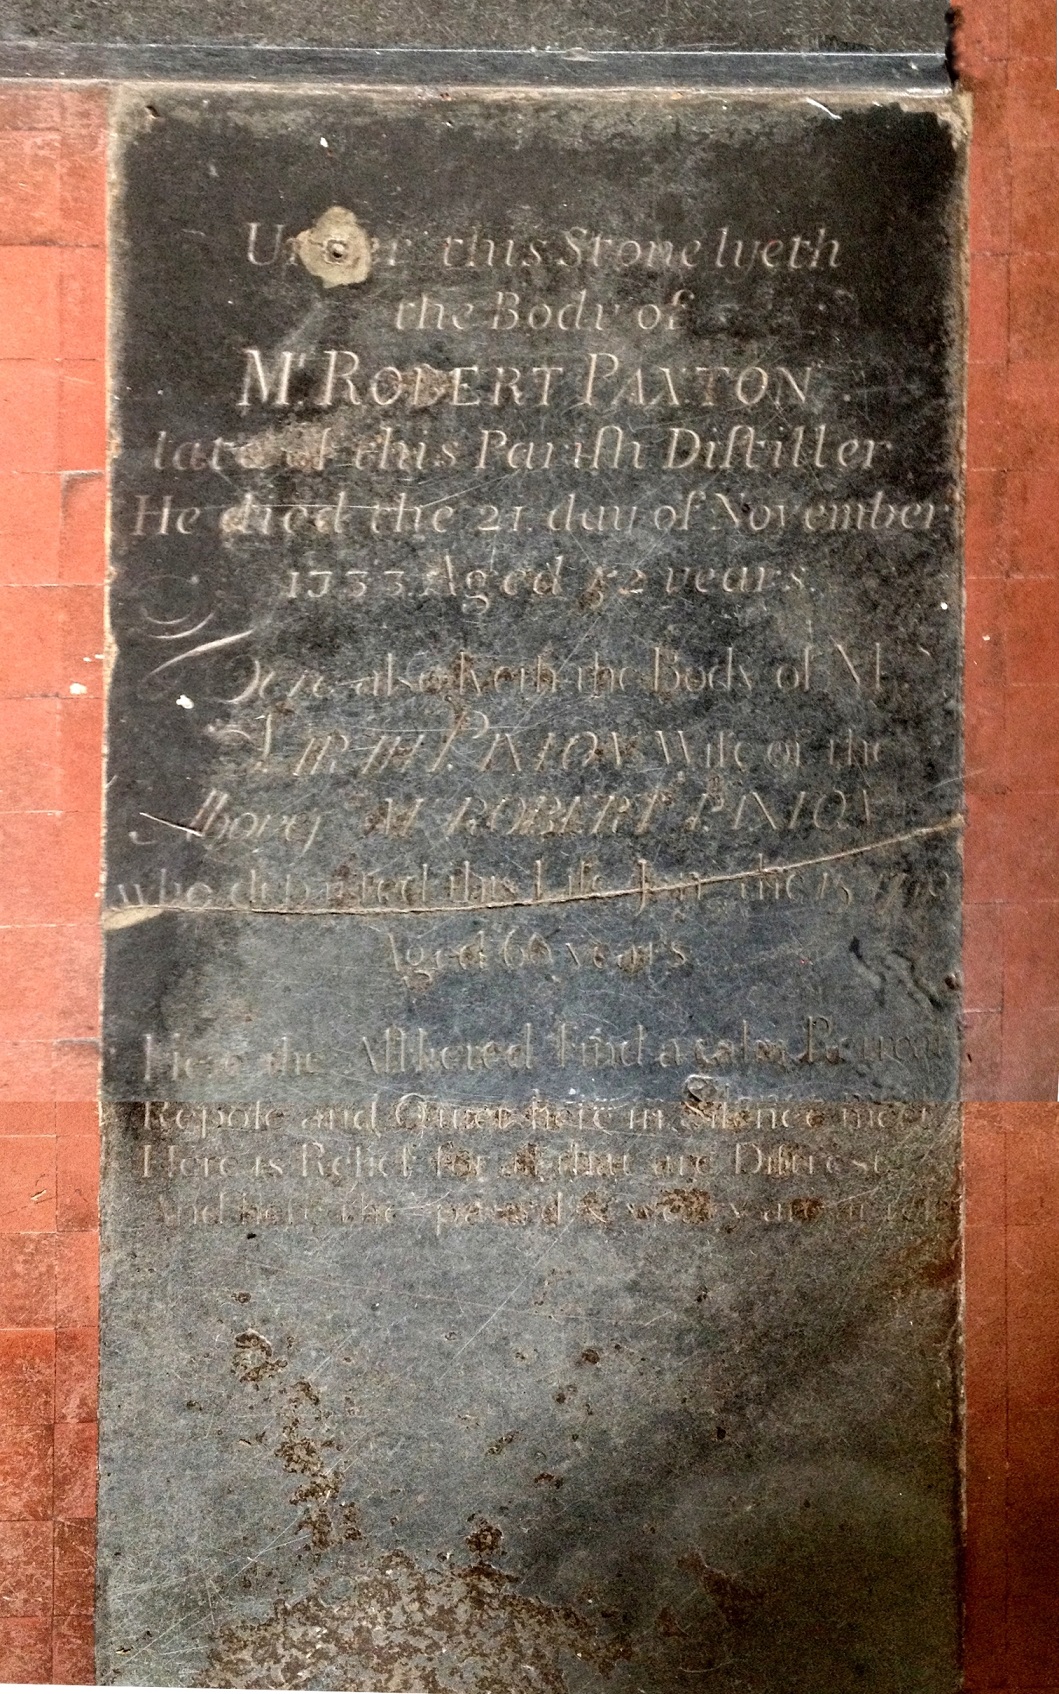 Under this Stone lyeth
the Body of
Mr. ROBERT PAXTON
late of this Pariſh Diſtiller
He died the 21. day of November
1733 Aged 52 years
Here also lyeth the Body of Mrs
PAXTON Wife of the
Above Mr ROBERT PAXTON
who departed this Life the 15
Aged years
Here the Afflicted Find a calm Retreat
Repoſe and Quiet here in Silence meet
Here is Relief for all that are Diſtreſt
And here the weary are at reſt